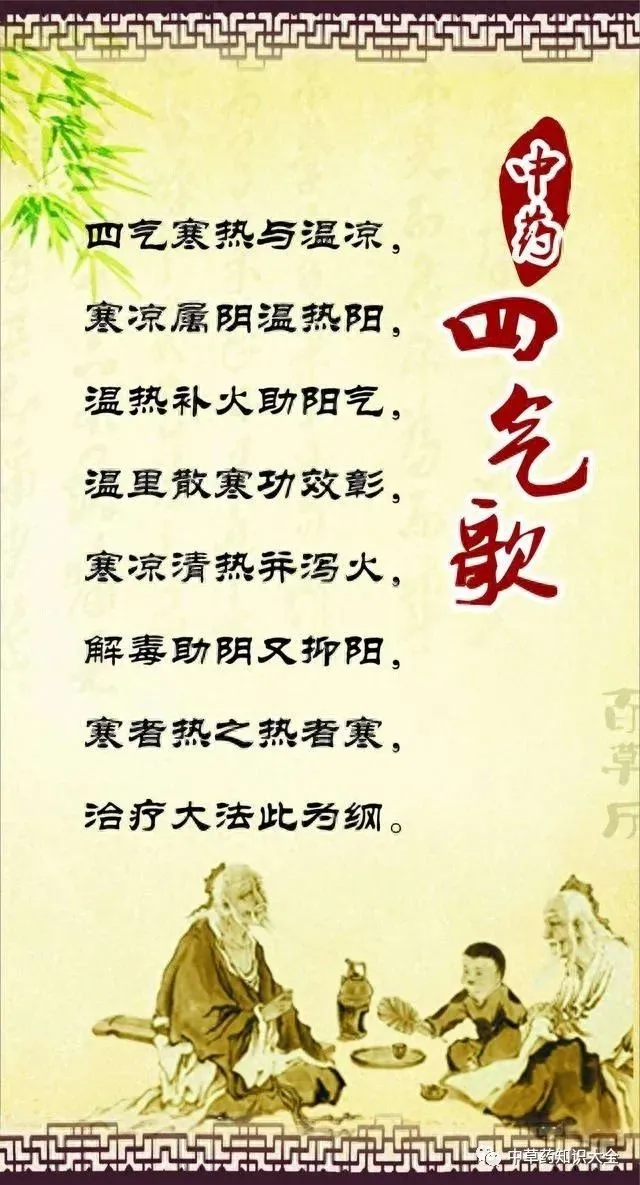 中药
四气歌
四气寒热与温凉，
寒凉属阴温热阳，
温热补火助阳气，
温里散寒功效彰，
寒凉清热并泻火，
解毒助阴又抑阳，
寒者热之热者寒，
治疗大法此为纲。
百草厅
中草药知识大全